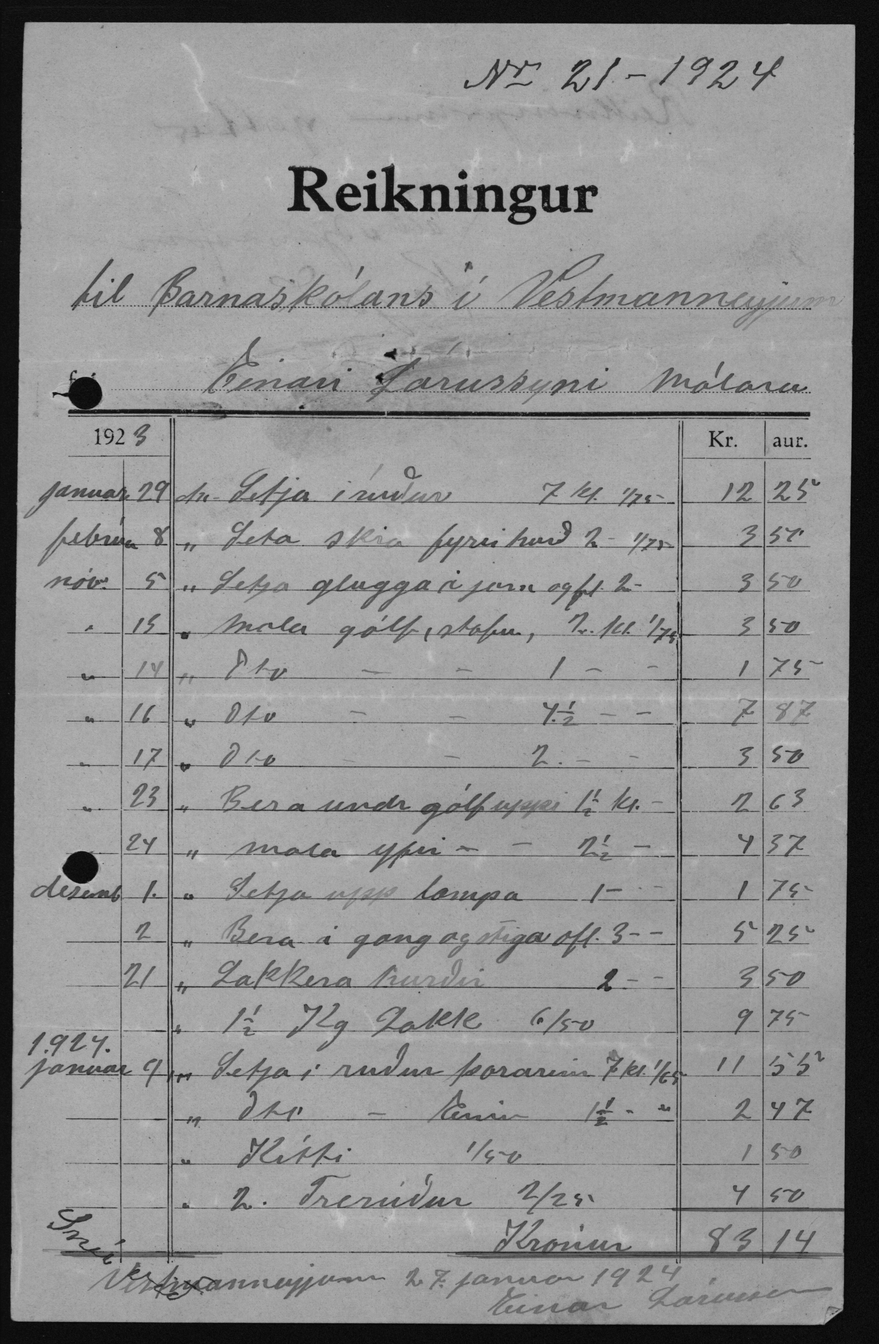 Nr 21 - 1924
Reikningur
til Barnaskólans í Vestmannaeyjum
Einari Lárussyni málara
1923 Kr. aur.
januar 29 Setja í ruður 7 kl. 1/75 12 25
februa 8 „ Seta skra fyrir hurð 2 - 1/75 3 50
nóv. 5 „ Setja glugga í jarn og fl. 2 - 3 50
„ 13 „ mala gólf, stofur, 2 kl. 1/75 3 50
„ 14 „ Dto - - 1 - - 1 75
„ 16 „ Dto - - 4 1/2 - - 7 87
„ 17 „ Dto - 2 - - 3 50
„ 23 „ Bera undr gólf uppi 1 1/2 kl. - 2 63
24 „ mala yfir - - 2 1/2 - 4 37
desemb 1. „ Setja upp lampa 1 - - - 1 75
2 „ Bera í gang og stiga ofl. 3 - - 5 25
21 „ Lakkera hurðir 2 - - 3 50
„ 1 1/2 Kg Lakk 6/50 9 75
1924.
januar 9 „ Setja í ruður þorarinn 7 kl. 1/65 11 55
„ Dto - Einar 1 1/2 - „ 2 47
„ Kítti 1/50 1 50
„ 2. Treruður 2/25 4 50
Kronur 83 14
Vestmannaeyjum 27. januar 1924
Einar Lárusson